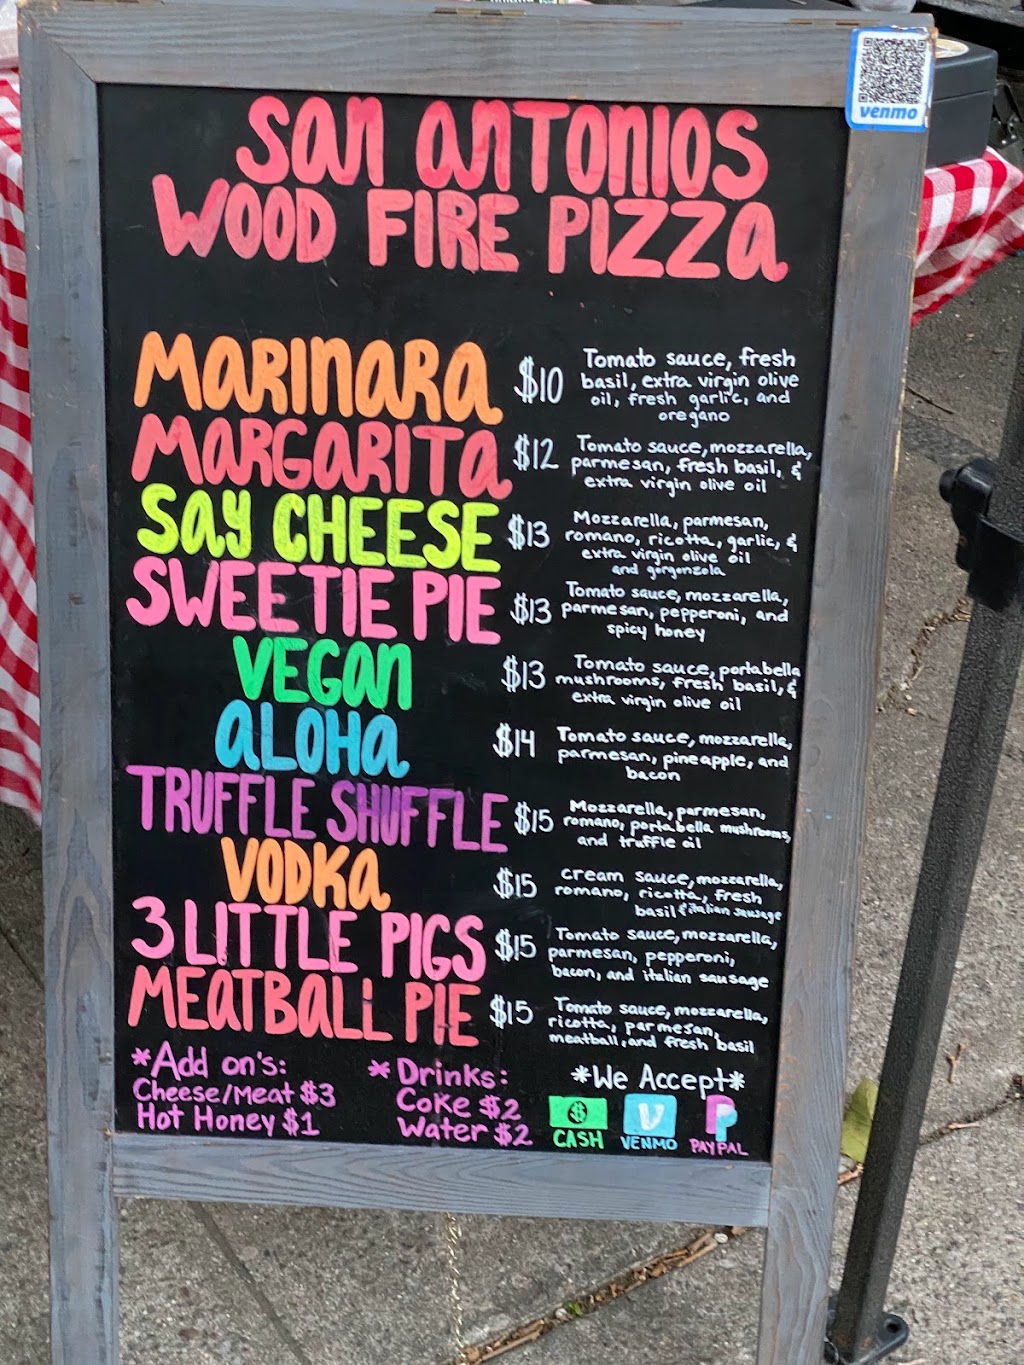 venmo
SAN ANTONIOS
WOOD FIRE PIZZA
MARINARA $10
Tomato sauce, fresh
basil, extra virgin olive
oil, fresh garlic, and
oregano
MARGARITA $12
Tomato sauce, mozzarella,
parmesan, fresh basil, &
extra virgin olive oil
SAY CHEESE $13
Mozzarella, parmesan,
romano, ricotta, garlic, &
extra virgin olive oil
and gorgonzola
SWEETIE PIE $13
Tomato sauce, mozzarella,
parmesan, pepperoni, and
spicy honey
VEGAN $13
Tomato sauce, portabella
mushrooms, fresh basil, &
extra virgin olive oil
ALOHA $14
Tomato sauce, mozzarella,
parmesan, pineapple, and
bacon
TRUFFLE SHUFFLE $15
Mozzarella, parmesan,
romano, portabella mushrooms,
and truffle oil
VODKA $15
cream sauce, mozzarella,
romano, ricotta, fresh
basil & italian sausage
3 LITTLE PIGS $15
Tomato sauce, mozzarella,
parmesan, pepperoni,
bacon, and italian sausage
MEATBALL PIE $15
Tomato sauce, mozzarella,
ricotta, parmesan,
meatball, and fresh basil
*Add on's:
Cheese/Meat $3
Hot Honey $1
*Drinks:
Coke $2
Water $2
*We Accept*
$ V P
CASH VENMO PAYPAL